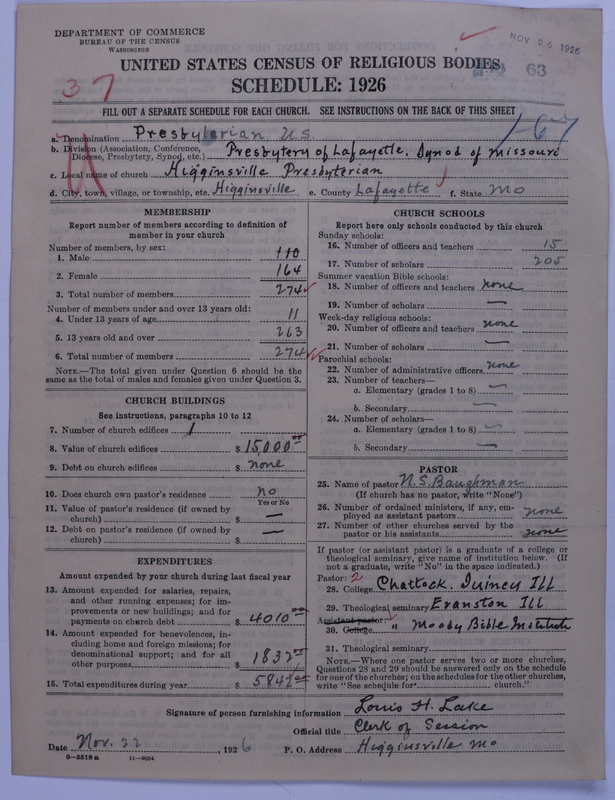 DEPARTMENT OF COMMERCE
BUREAU OF THE CENSUS
WASHINGTON
NOV 26 1926
UNITED STATES CENSUS OF RELIGIOUS BODIES
63
SCHEDULE: 1926
37
FILL OUT A SEPARATE SCHEDULE FOR EACH CHURCH. SEE INSTRUCTIONS ON THE BACK OF THIS SHEET
1-67
a. Denomination Presbyterian U.S.
b. Division (Association, Conference, Diocese, Presbytery, Synod, etc.) Presbytery of Lafayette. Synod of Missouri
c. Local name of church Higginsville Presbyterian
d. City, town, village, or township, etc. Higginsville e. County Lafayette f. State Mo
MEMBERSHIP
Report number of members according to definition of
member in your church
Number of members, by sex:
1. Male 110
2. Female 164
3. Total number of members 274
Number of members under and over 13 years old:
4. Under 13 years of age 11
5. 13 years old and over 263
6. Total number of members 274
NOTE.—The total given under Question 6 should be
same as the total of males and females given under Question 3.
CHURCH BUILDINGS
See instructions, paragraphs 10 to 12
7. Number of church edifices 1
8. Value of church edifices $ 15,000 00
9. Debt on church edifices $ none
10. Does church own pastor's residence no
Yes or No
11. Value of pastor's residence (if owned by
church) $ —
12. Debt on pastor's residence (if owned by
church) $ —
EXPENDITURES
Amount expended by your church during last fiscal year
13. Amount expended for salaries, repairs,
and other running expenses; for im-
provements or new buildings; and for
payments on church debt $ 4010 00
14. Amount expended for benevolences, in-
cluding home and foreign missions; for
denominational support; and for all
other purposes $ 1832 00
15. Total expenditures during year $ 5842 00
CHURCH SCHOOLS
Report here only schools conducted by this church
Sunday schools:
16. Number of officers and teachers 15
17. Number of scholars 205
Summer vacation Bible schools:
18. Number of officers and teachers none
19. Number of scholars —
Week-day religious schools:
20. Number of officers and teachers none
21. Number of scholars —
Parochial schools:
22. Number of administrative officers none
23. Number of teachers—
a. Elementary (grades 1 to 8) —
b. Secondary —
24. Number of scholars—
a. Elementary (grades 1 to 8) —
b. Secondary —
PASTOR
25. Name of pastor N. S. Baughman
(If church has no pastor, write "None")
26. Number of ordained ministers, if any, em-
ployed as assistant pastors none
27. Number of other churches served by the
pastor or his assistants none
If pastor (or assistant pastor) is a graduate of a college or
theological seminary, give name of institution below. (If
not a graduate, write "No" in the space indicated.)
Pastor: 2
28. College Chattock. Quincy Ill
29. Theological seminary Evanston Ill
Assistant pastor:
30. College " Moody Bible Institute
31. Theological seminary
NOTE.—Where one pastor serves two or more churches,
Questions 28 and 29 should be answered only on the schedule
for one of the churches; on the schedules for the other churches,
write "See schedule for church."
Signature of person furnishing information Louis H. Lake
Official title Clerk of Session
Date Nov. 22, 1926 P. O. Address Higginsville Mo
8—5518 a 11—9054